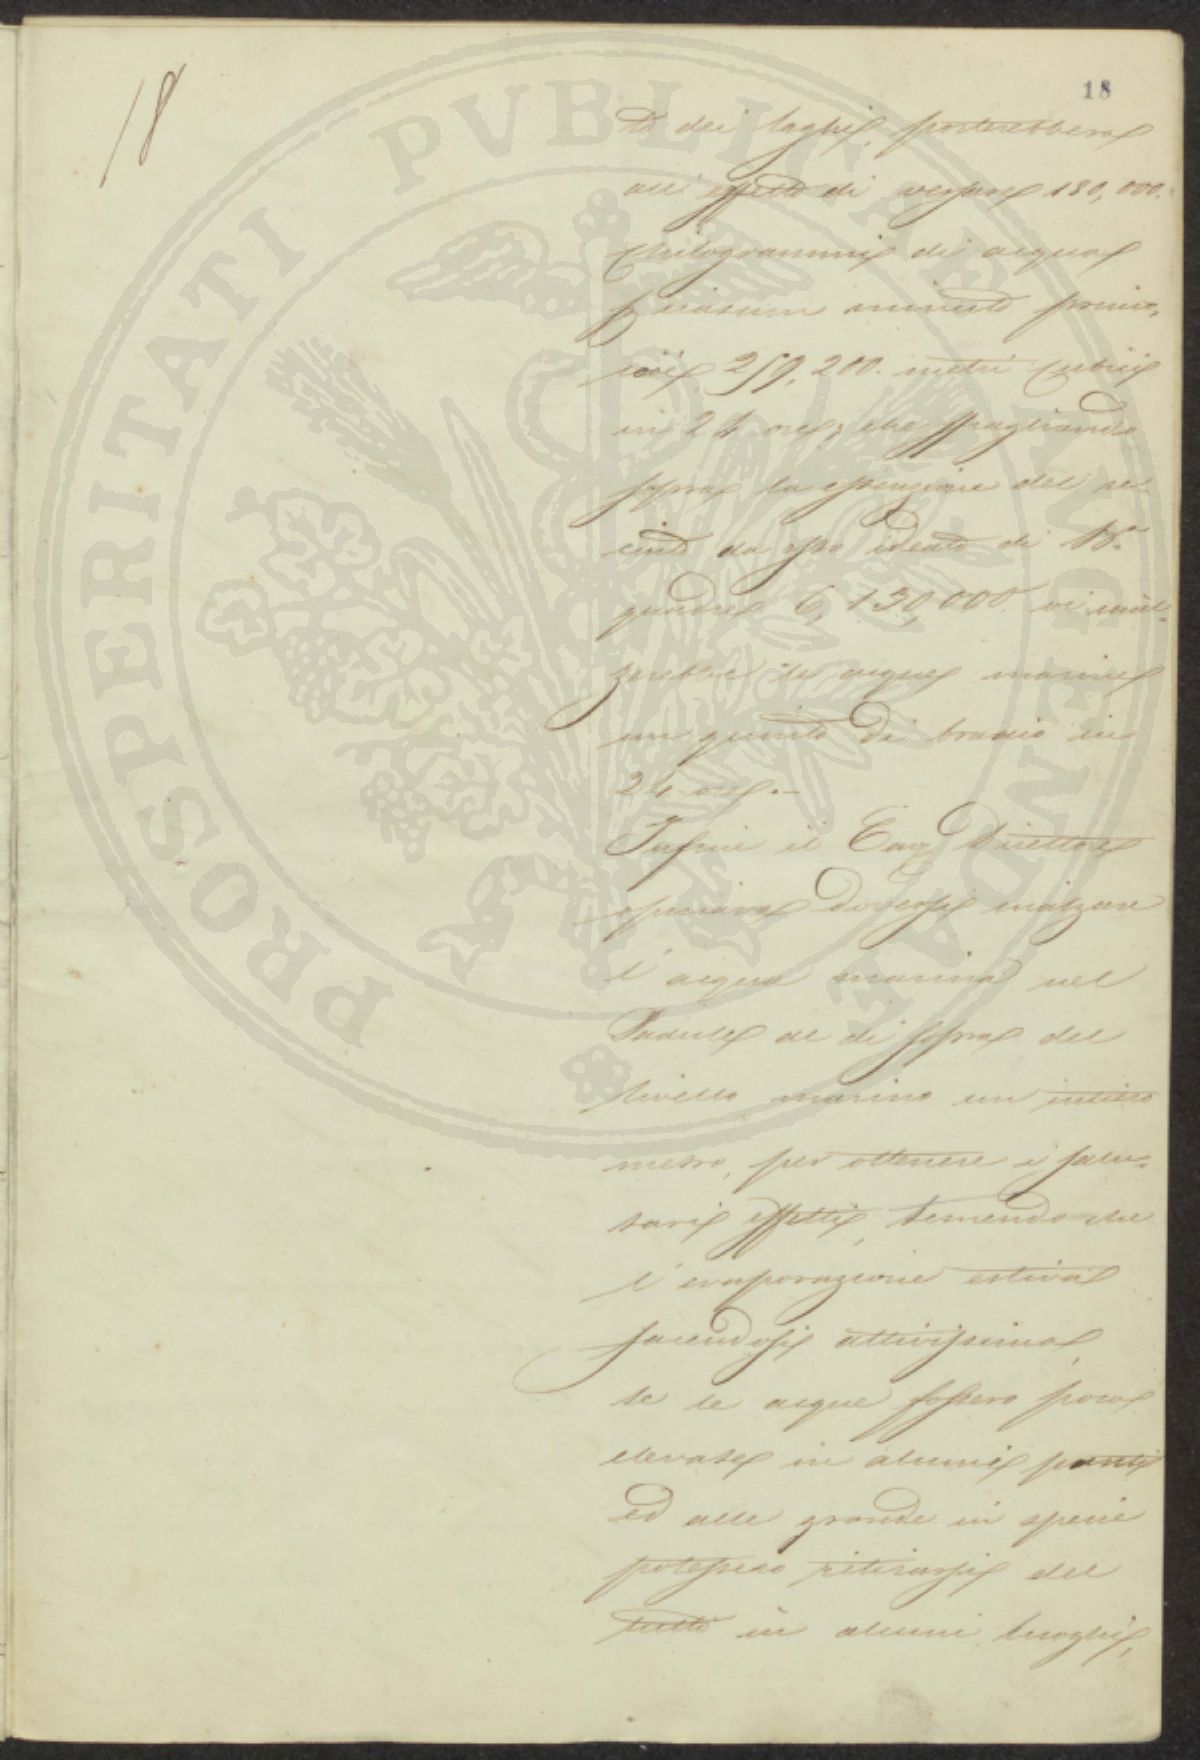 18
18
to dei laghi, porterebbero
all'effetto di versare 180,000.
Chilogrammi di acqua
p ciascun minuto primo,
ossia 259,200. metri cubici
in 24 ore; che spagliando
sopra la estenzione del re-
cinto da esso ideato di Ba
quadre 6,130,000. vi inal-
zerebbe le acque marine
un quinto di braccio in
24 ore.-
Infine il Cav Direttore
opinava doversi inalzare
l'acqua marina nel
Padule al di sopra del
livello marino un intiero
metro, per ottenere i salu-
tari effetti, temendo che
l'evaporazione estiva
facendosi attivissima,
se le acque fossero poco
elevate in alcuni punti
ed alle gronde in specie
potessero ritirarsi del
tutto in alcuni luoghi,
PROSPERITATI PVBLICAE AVGENDAE